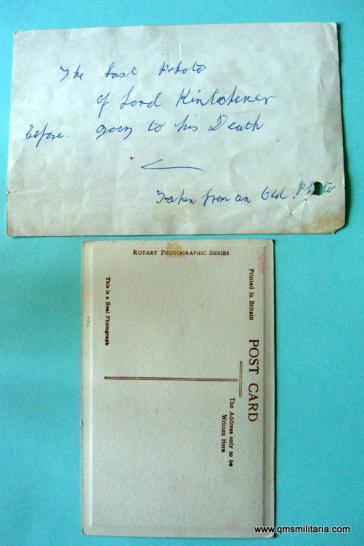 The Last Photo
of Lord Kintchener
before. going to his Death
Taken from an Old Photo
ROTARY PHOTOGRAPHIC SERIES
This is a Real Photograph
Printed in Britain
POST CARD
The Address only to be
Written Here
www.qmsmilitaria.com